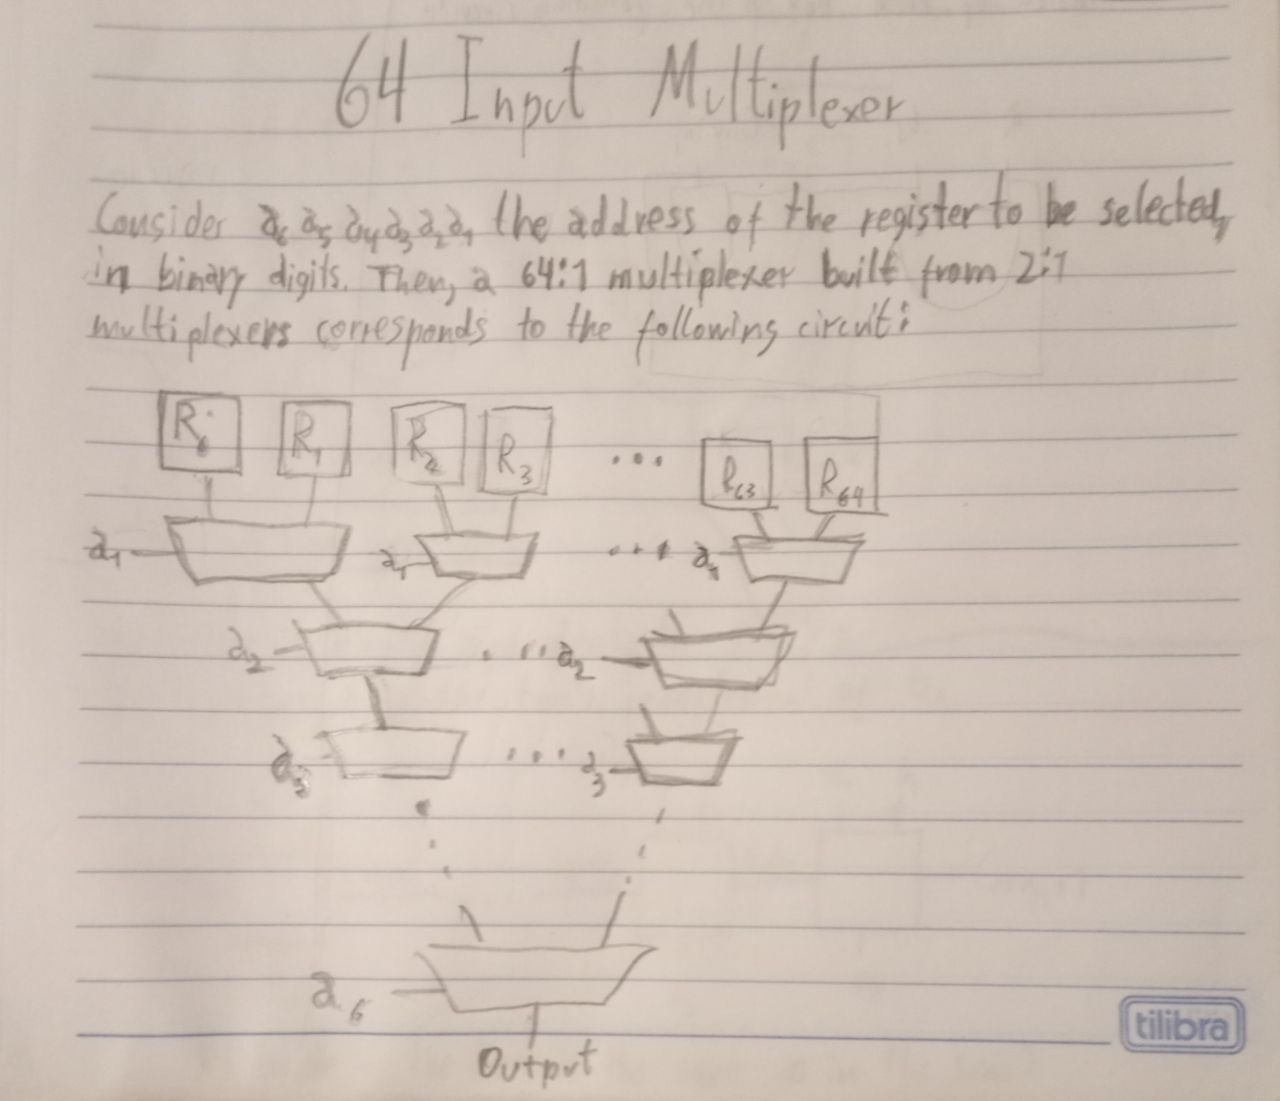 64 Input Multiplexer
Consider a₆ a₅ a₄ a₃ a₂ a₁ the address of the register to be selected,
in binary digits. Then, a 64:1 multiplexer built from 2:1
multiplexers corresponds to the following circuit:
R₀ R₁ R₂ R₃ ... R₆₃ R₆₄
a₁ a₁ ... a₁
a₂ ... a₂
a₃ ... a₃
a₆
Output
tilibra